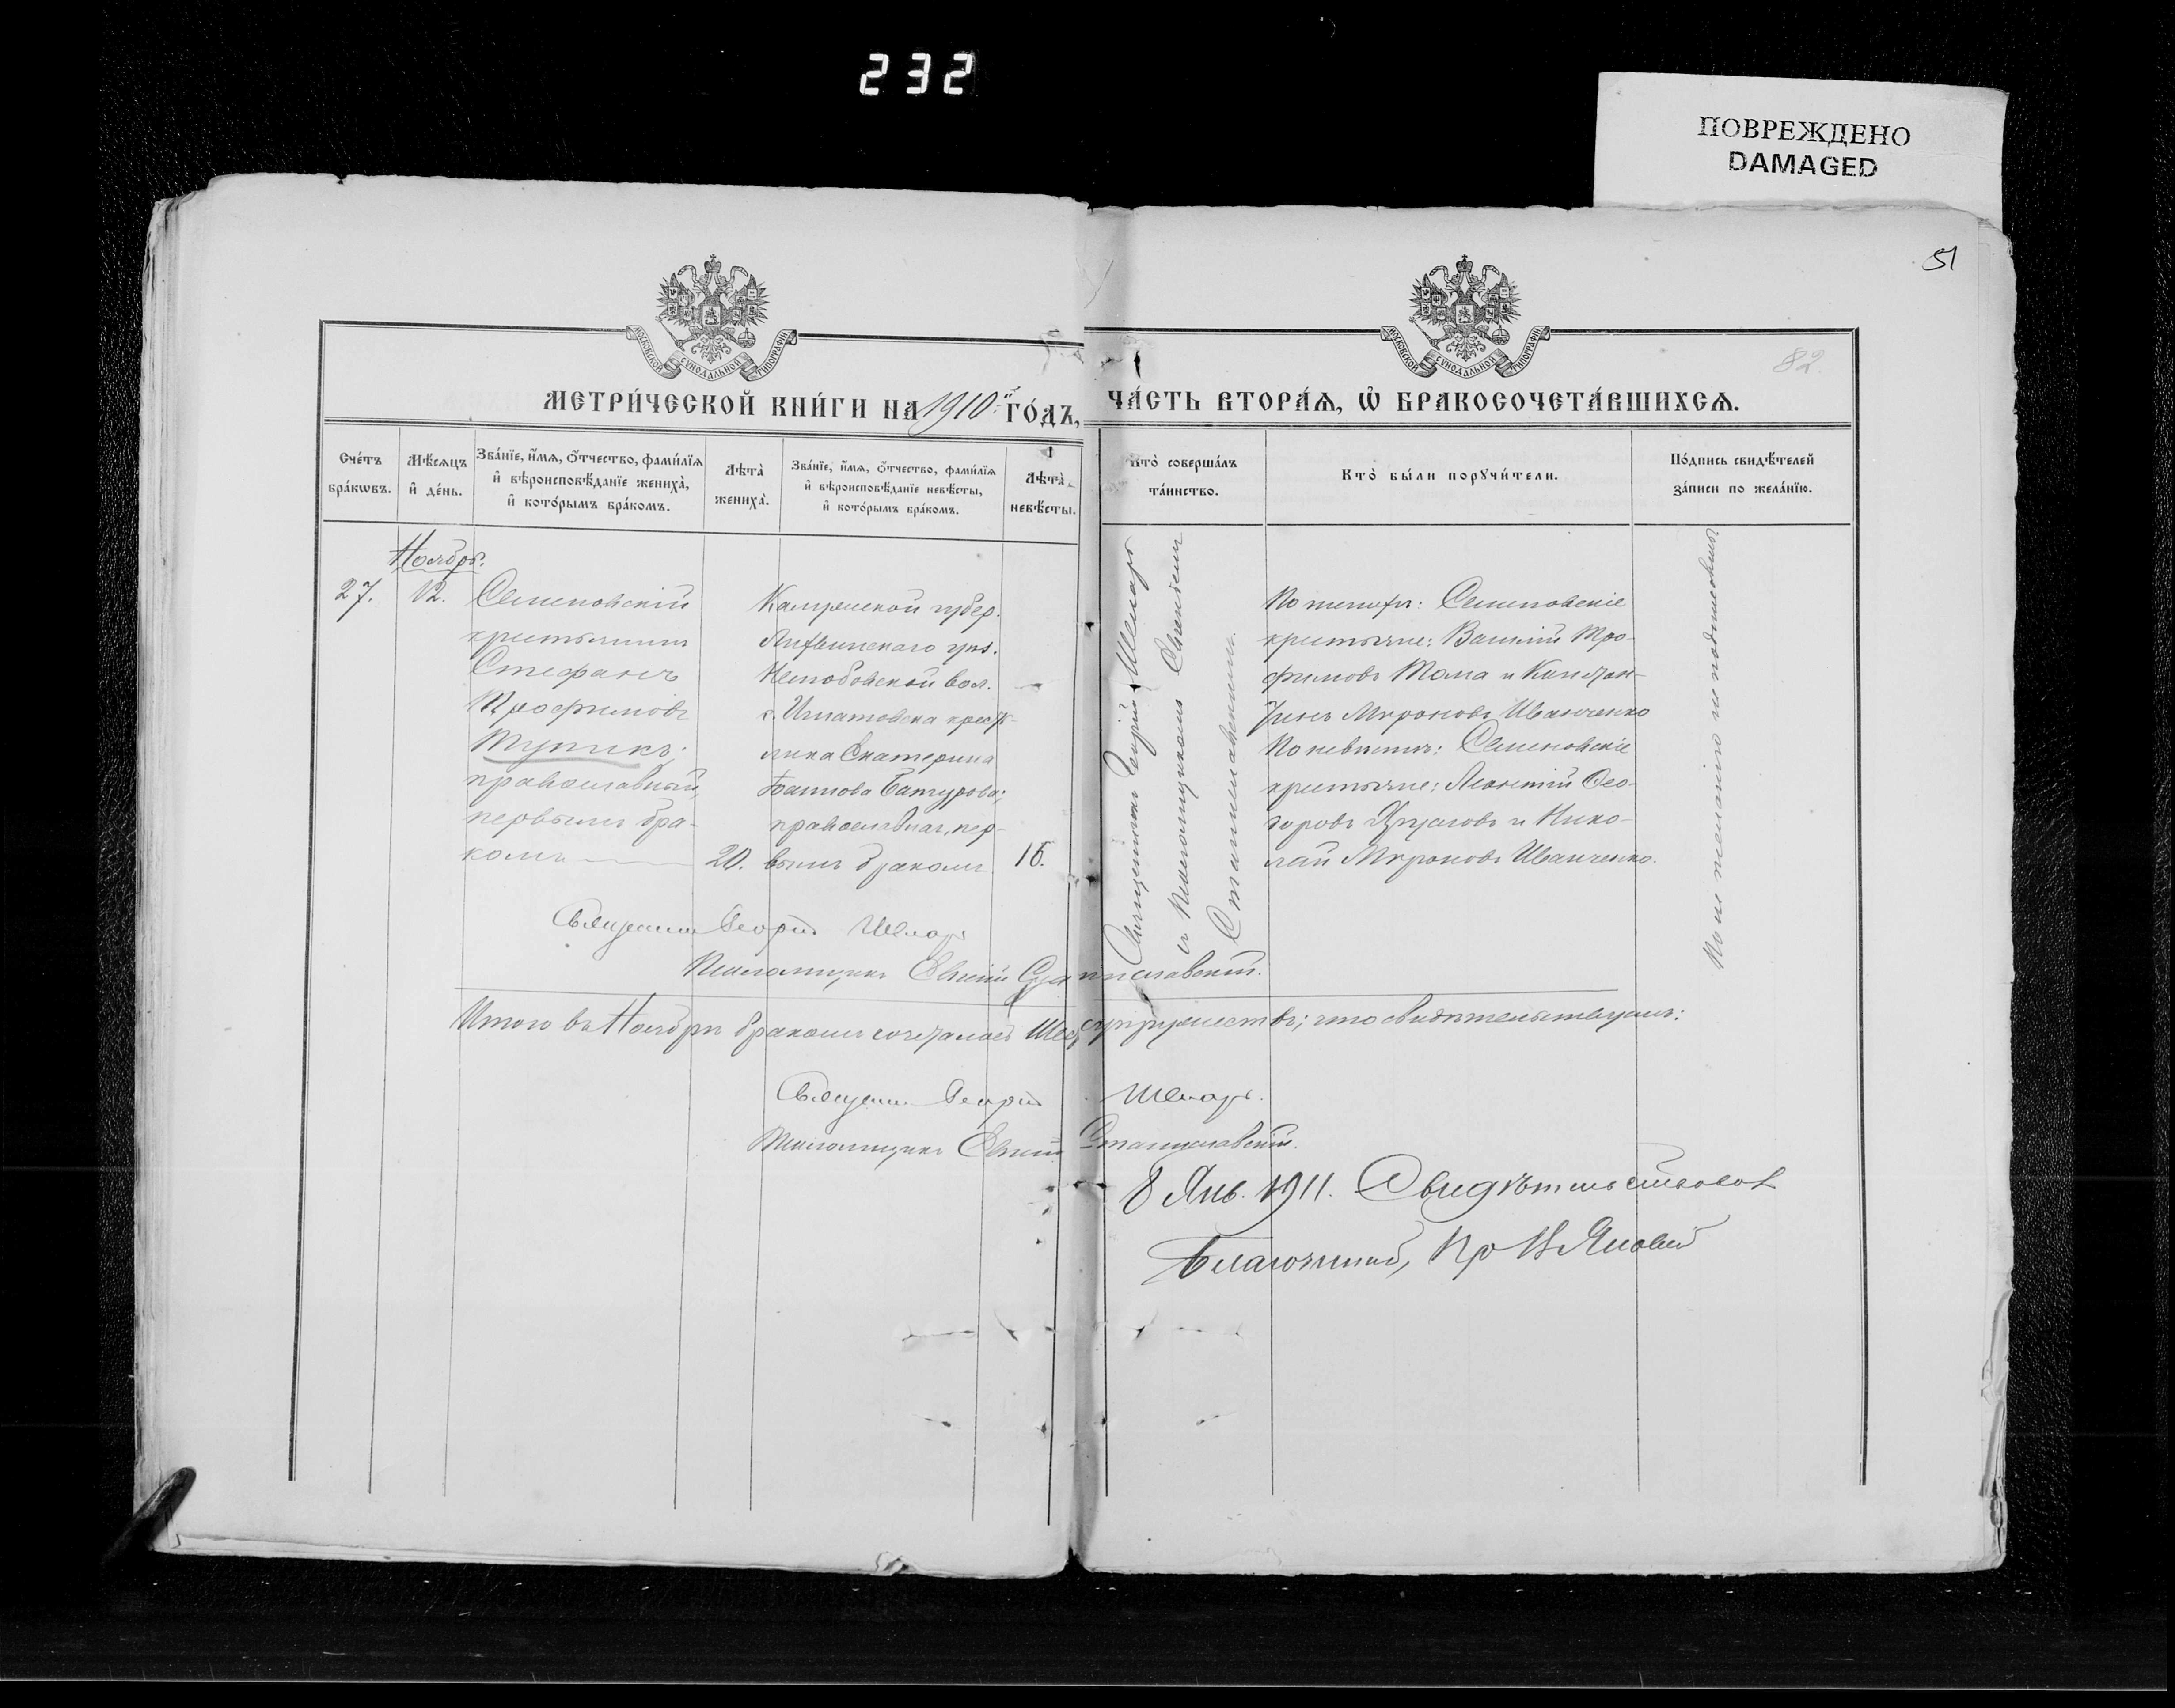 232
ПОВРЕЖДЕНО
DAMAGED
51
82.
МОСКОВСКОЙ СУНОДАЛЬНОЙ ТИПОГРАФІИ
МОСКОВСКОЙ СУНОДАЛЬНОЙ ТИПОГРАФІИ
МЕТРИ́ЧЕСКОЙ КНИ́ГИ НА 1910й ГО́ДЪ, ЧА́СТЬ ВТОРА́Ѧ, Ѡ҆ БРАКОСОЧЕТА́ВШИХСѦ.
Сче́тъ бра́кѡвъ.
Мѣ́сѧцъ и҆ де́нь.
Зва́нїе, и҆́мѧ, ѻ҆́тчество, фами́лїѧ и҆ вѣроисповѣ́данїе жениха̀, и҆ кото́рымъ бра́комъ.
Лѣта̀ жениха̀.
Зва́нїе, и҆́мѧ, ѻ҆́тчество, фами́лїѧ и҆ вѣроисповѣ́данїе невѣ́сты, и҆ кото́рымъ бра́комъ.
Лѣта̀ невѣ́сты.
Кто̀ соверша́лъ та́инство.
Кто̀ бы́ли порꙋчи́тели.
По́дпись свидѣ́телей за́писи по жела́нїю.
Ноябрь.
27.
12.
Семеновскій
крестьянинъ
Стефанъ
Трофимовъ
Тупикъ;
православный,
первымъ бра-
комъ
20.
губер.
уѣз.
вол.
Екатерина
православная, пер-
вымъ бракомъ
16.
Священникъ Георгій Шемаръ
съ Псаломщикомъ Евгеніемъ
Станиславскимъ.
По женихѣ: Семеновскіе
крестьяне: Василій Тро-
фимовъ Тома и Констан-
тинъ Мироновъ Иванченко
По невѣстѣ: Семеновскіе
крестьяне: Леонтій Ѳео-
доровъ и Нико-
лай Мироновъ Иванченко.
По не желанію не подписовались
Священникъ Георгій Шемаръ
Псаломщикъ Евгеній Станиславскій.
Итого въ Ноябрѣ бракомъ сочеталось супружествъ; что свидѣтельствуемъ:
Священникъ Георгій Шемаръ.
Псаломщикъ Евгеній Станиславскій.
8 Янв. 1911. Свидѣтельствовалъ
Благочинный,